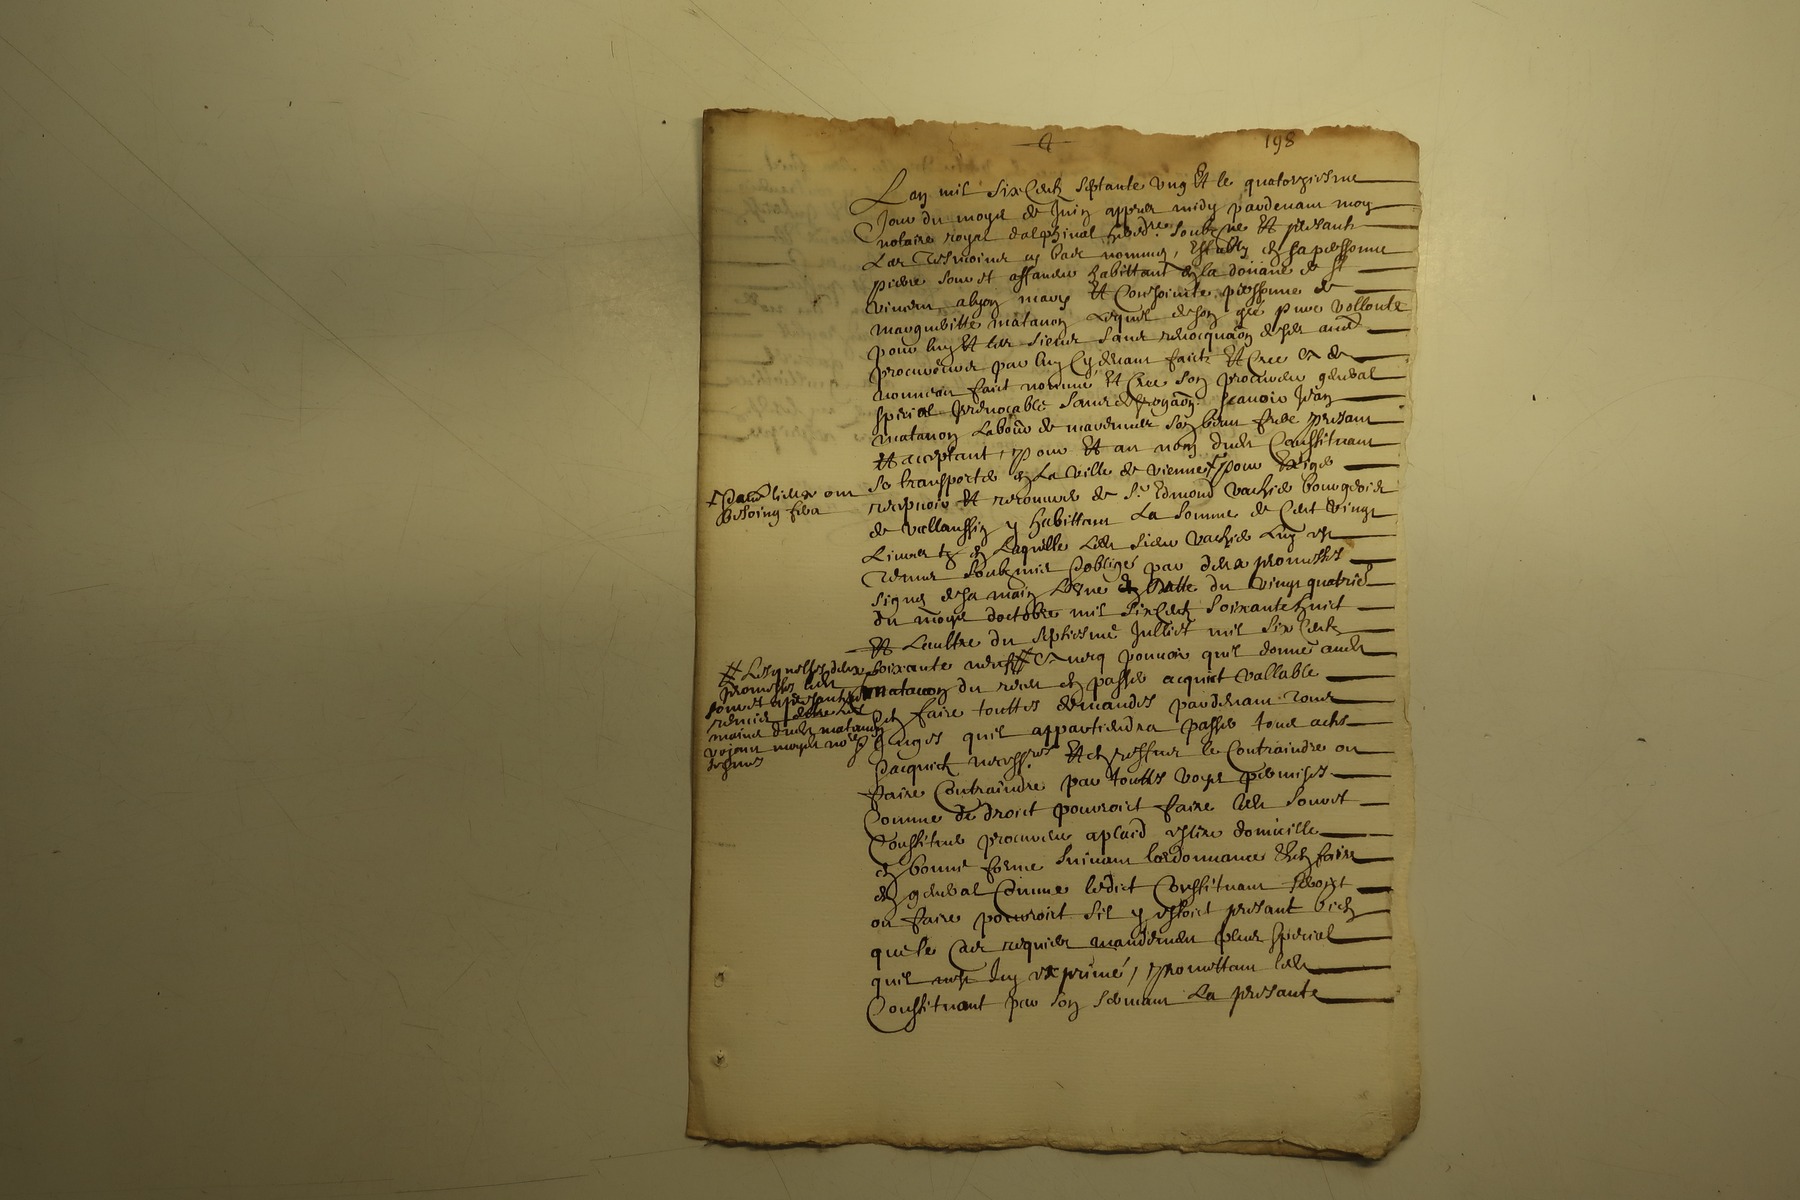 198
Lan mil six centz septante ung Et le quatorziesme
Jour du moys de Juin appres midy pardevant moy
notaire royal dalphinal heredre soubzne Et presantz
Les Tesmoins cy bas nommes, estably en sa personne
pierre Souvet affaneur habittant en la doüane de St
vincent mary Et Conjointe personne de
margueritte matanon Lequel de son gré pure vollonté
pour luy Et les siens sans revocquaon de ses aues
procureurs par luy Cy devant faictz Et Crée a de
nouveau faict nommé Et Crée son procureur general
special Irrevocable sans desrogaon scavoir Jean
matanon Labour de son beau frere presant
Et acceptant, pour Et au nom dudt Constituant
se transporter en La ville de vienne pour Exiger
recepvoir Et recouvrer de Sr Edmond vachier bourgeois
de y habittant La somme de Cent vingt
Livres tz en Laquelle Ledt sieur vachier Luy est
Tenu soubzmis Dobligé par deux promesses
signes de sa main Lune en Datte du vingt quatrie
du moys doctobre mil six Centz soixante huict
Et Laultre du septiesme Julliet mil six Centz
soixante neuf # avecq pouvoir quil donne audt
matanon du receu en passer acquict vallable
En faire touttes demandes pardevant tous
Juges quil appartiendra passer tous actes
Dacquictz necessres Et en reffus le Contraindre ou
faire Contraindre par touttes voyes permises
Comme de droict pourroict faire ledt Souvet
Constituer procureur a plaid eslire domicille
en bonne forme suivant lordonnance Et en faire
en general Comme ledict Constituant feroict
ou faire pourroict sil y estoict presant bien
que le Cas requier mandement plus special
quil nest Icy exprimé, promettant ledt
Constituant par son serment La presante
par tout lieux ou
Besoing sera
# Lesquelles deux
promesses ledt
Souvet a presantement
remis es
mains dudt matanon
voyant moydt nore &
tesmoins